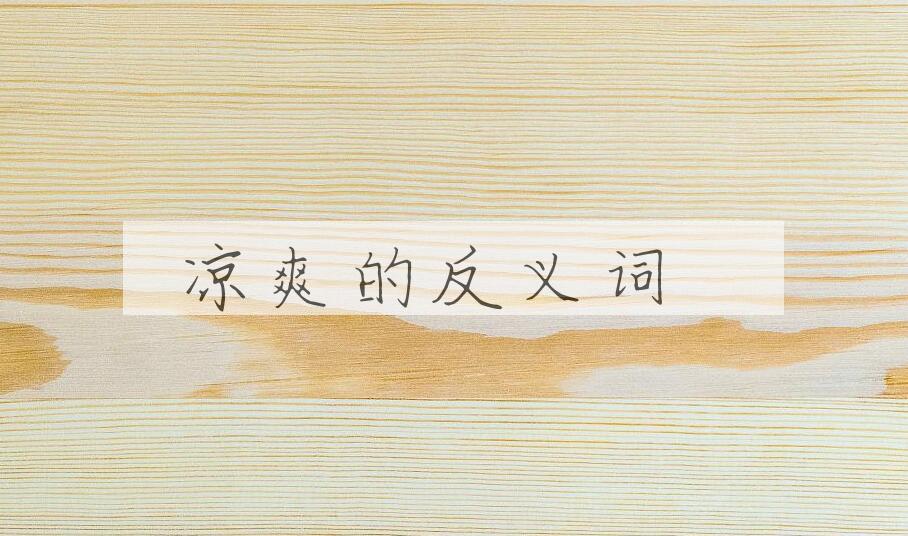 凉爽的反义词